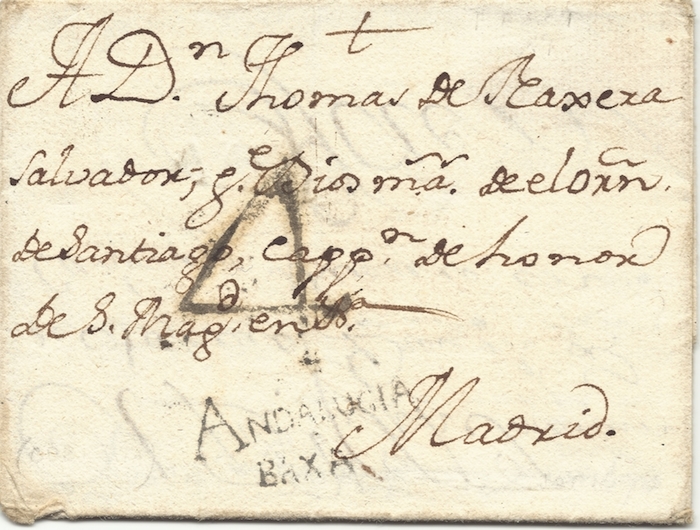 A Dn. Thomas de Raxera
Salvador, ge. Dios ma. del orñ.
de Santiago, Cappn. de honor
de S. Magd. en
ANDALUCIA
BAXA
Madrid.